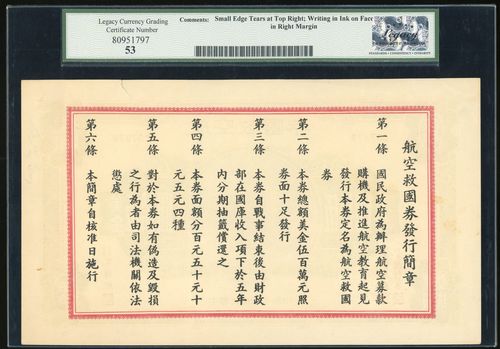 Legacy Currency Grading
Certificate Number
80951797
53
Comments: Small Edge Tears at Top Right; Writing in Ink on Face
in Right Margin
Legacy
航空救國券發行簡章
第一條 國民政府為辦理航空募款
購機及推進航空教育起見
發行本券定名為航空救國
券
第二條 本券總額美金伍百萬元照
券面十足發行
第三條 本券自戰事結束後由財政
部在國庫收入項下於五年
內分期抽籤償還之
第四條 本券面額分百元五十元十
元五元四種
第五條 對於本券如有偽造及毀損
之行為者由司法機關依法
懲處
第六條 本簡章自核准日施行